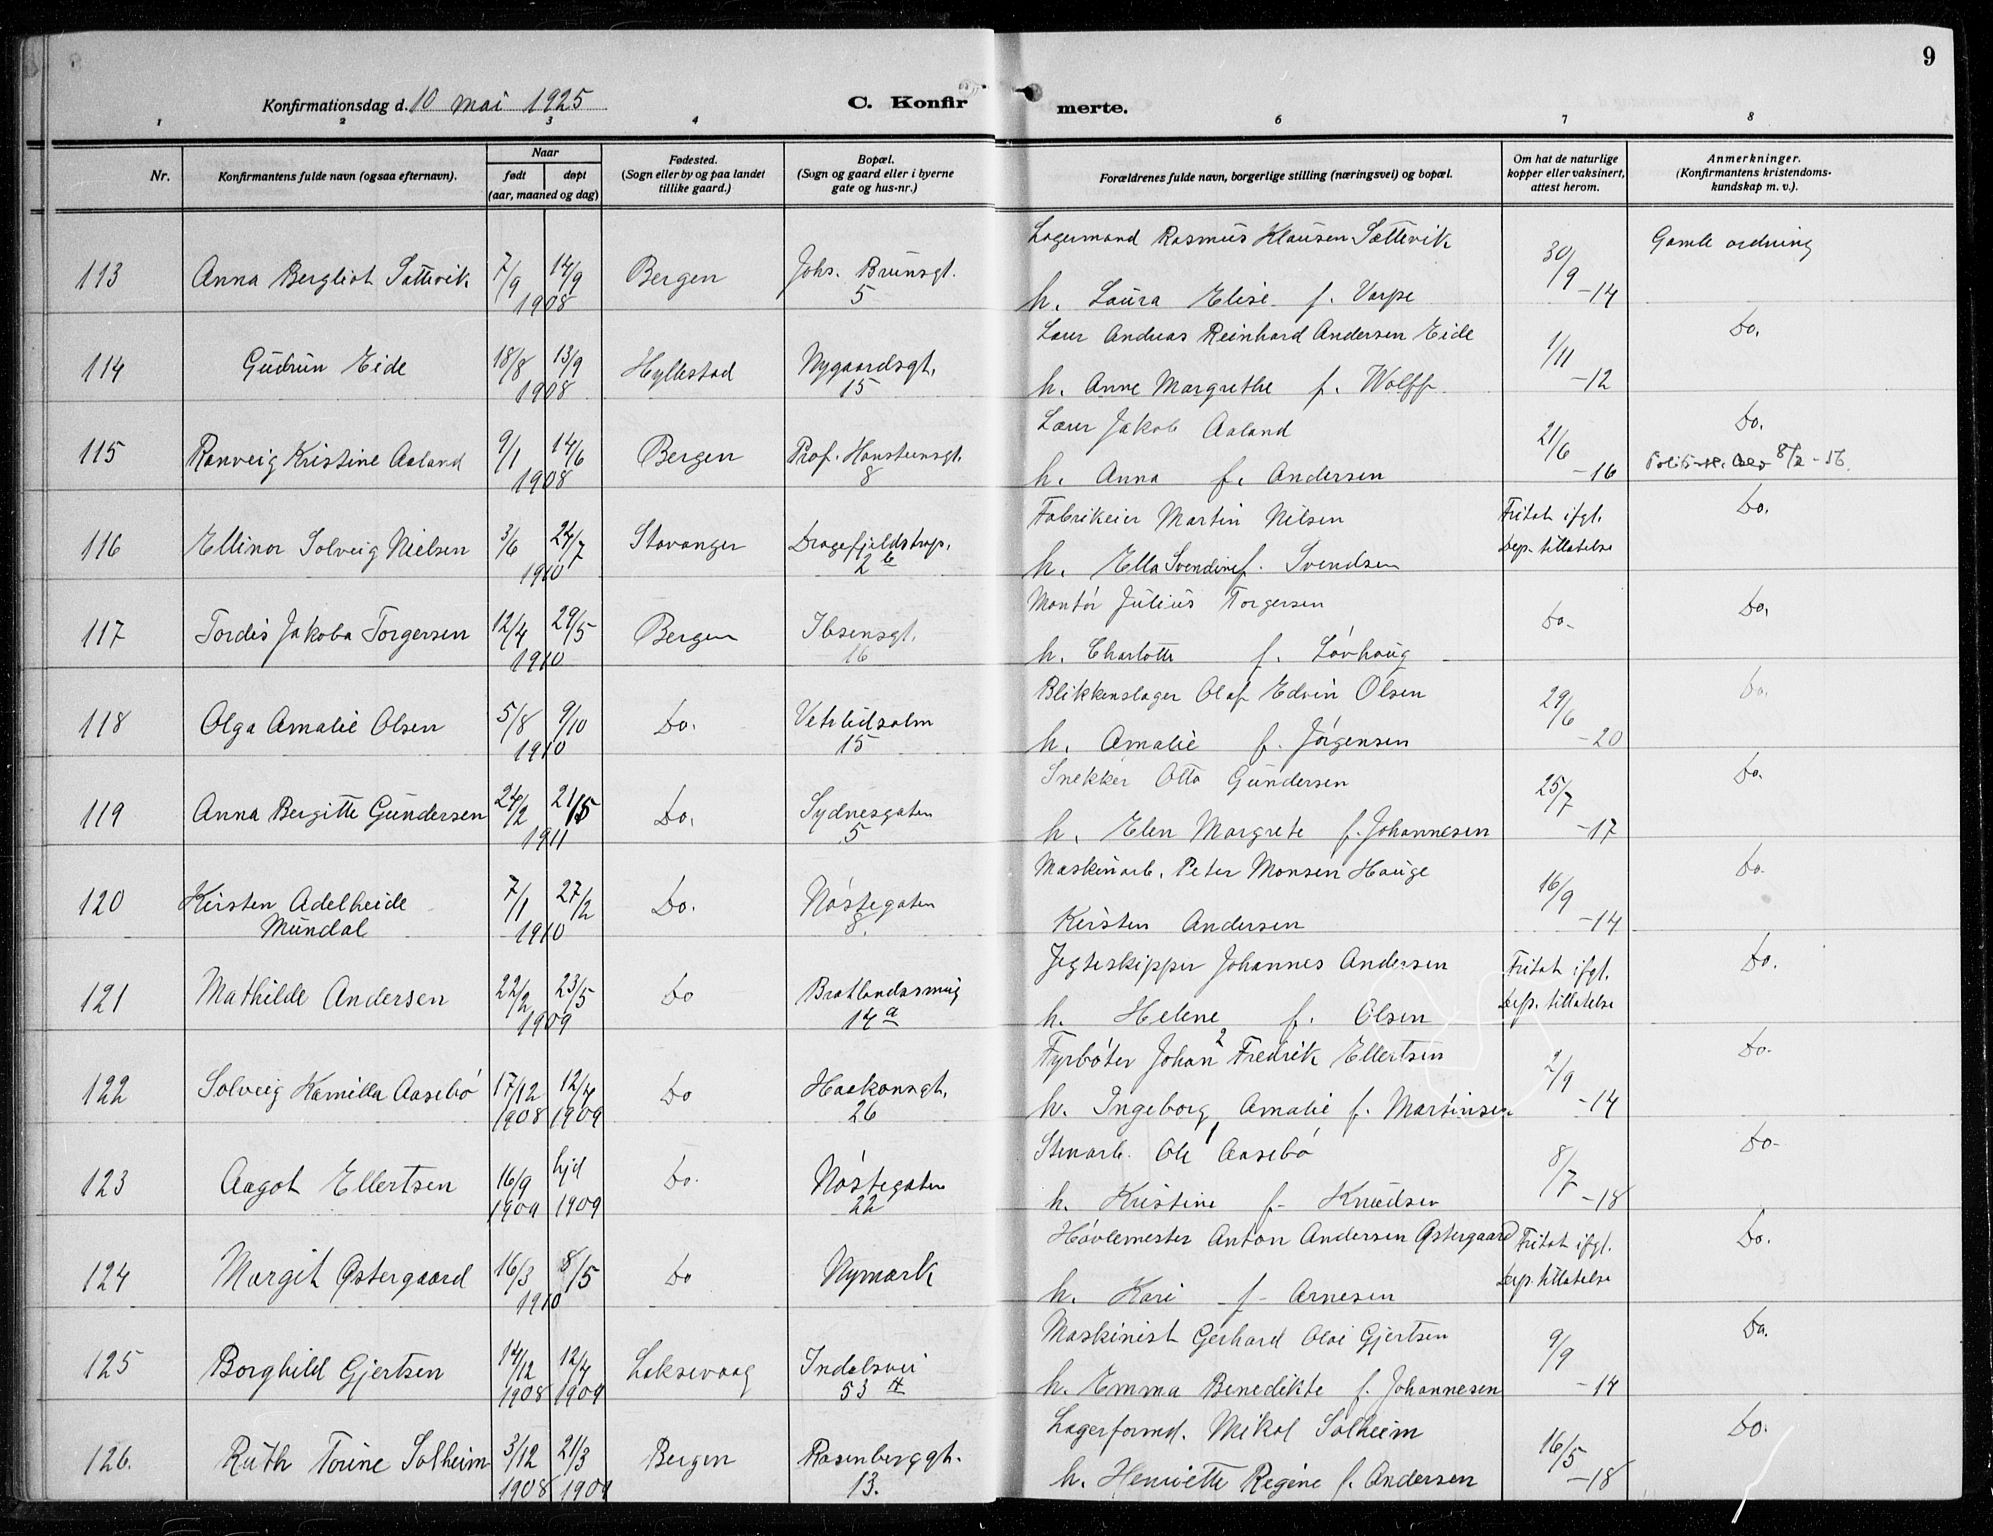 9
Konfirmationsdag d. 10 mai 1925
C. Konfirmerte.
1 2 3 4 6 7 8
Nr.
Konfirmantens fulde navn (ogsaa efternavn).
Naar
født døpt
(aar, maaned og dag)
Fødested.
(Sogn eller by og paa landet
tillike gaard.)
Bopæl.
(Sogn og gaard eller i byerne
gate og hus-nr.)
Forældrenes fulde navn, borgerlige stilling (næringsvei) og bopæl.
Om hat de naturlige
kopper eller vaksinert,
attest herom.
Anmerkninger.
(Konfirmantens kristendoms-
kundskap m. v.).
Lagermand Rasmus Klausen Sættevik
113 Anna Bergliot Sættevik 7/9 14/9 Bergen Johs. Brunsgt. 30/9 Gamle ordning
1908 5 h. Laura Elise f. Varpe -14
Lærer Andreas Reinhard Andersen Eide Do.
114 Gudrun Eide 18/8 13/9 Hyllestad Nygaardsgt. 1/11
1908 15 h. Anne Margrethe f. Wolff -12
Lærer Jakob Aaland Do.
115 Ranveig Kristine Aaland 9/1 14/6 Bergen Prof. Hansteensgt. 21/6
1908 8 h. Anna f. Andersen -16 8/2 - 56.
Fabrikeier Martin Nilsen Fritat ifgl. Do.
116 Ellinor Solveig Nielsen 3/6 24/7 Stavanger Dragefjeldstrap. Dep. tillatelse
1910 2 b h. Ella Svendine f. Svendsen
Montør Julius Torgersen Do.
117 Tordis Jakoba Torgersen 12/4 29/5 Bergen Ibsensgt. Do.
1910 16 h. Charlotte f. Løvhaug
Blikkenslager Olaf Edvin Olsen Do.
118 Olga Amalie Olsen 5/8 9/10 Do. Vetrlidsalm 29/6
1910 15 h. Amalie f. Jørgensen -20
Snekker Otto Gundersen Do.
119 Anna Bergitte Gundersen 24/2 21/5 Do. Sydnesgaten 25/7
1911 5 h. Elen Margrete f. Johannesen -17
Maskinarb. Peter Monsen Hauge Do.
120 Kirsten Adelheide 7/1 27/2 Do. Nøstegaten 16/9
Mundal 1910 8. Kirsten Andersen -14
Jegteskipper Johannes Andersen Fritat ifgl. Do.
121 Mathilde Andersen 22/2 23/5 Do Bratlandssmug Dep. tillatelse
1909 14 a h. Helene f. Olsen
Fyrbøter Johan 2 Fredrik Ellertsen Do.
122 Solveig Kamilla Aasebø 17/12 12/4 Do Haakonsgt. 2/9
1908 1909 26 h. Ingeborg Amalie f. Martinsen -14
Stenarb. Ole 1 Aasebø Do.
123 Aagot Ellertsen 16/9 hjd Do. Nøstegaten 8/7
1909 1909 22 h. Kristine f. Knudsen -18
Høvlemester Anton Andersen Østergaard Fritat ifgl. Do.
124 Margit Østergaard 16/3 8/5 Do Nymark Dep. tillatelse
1910 h. Kari f. Arnesen
Maskinist Gerhard Olai Gjertsen Do.
125 Borghild Gjertsen 14/12 12/4 Laksevaag Indalsvei 9/9
1908 1909 53 h. Emma Benedikte f. Johannesen -14
Lagerformd. Mikal Solheim Do.
126. Ruth Torine Solheim 3/12 21/3 Bergen Rosenberggt. 16/5
1908 1909 13. h. Henriette Regine f. Andersen -18